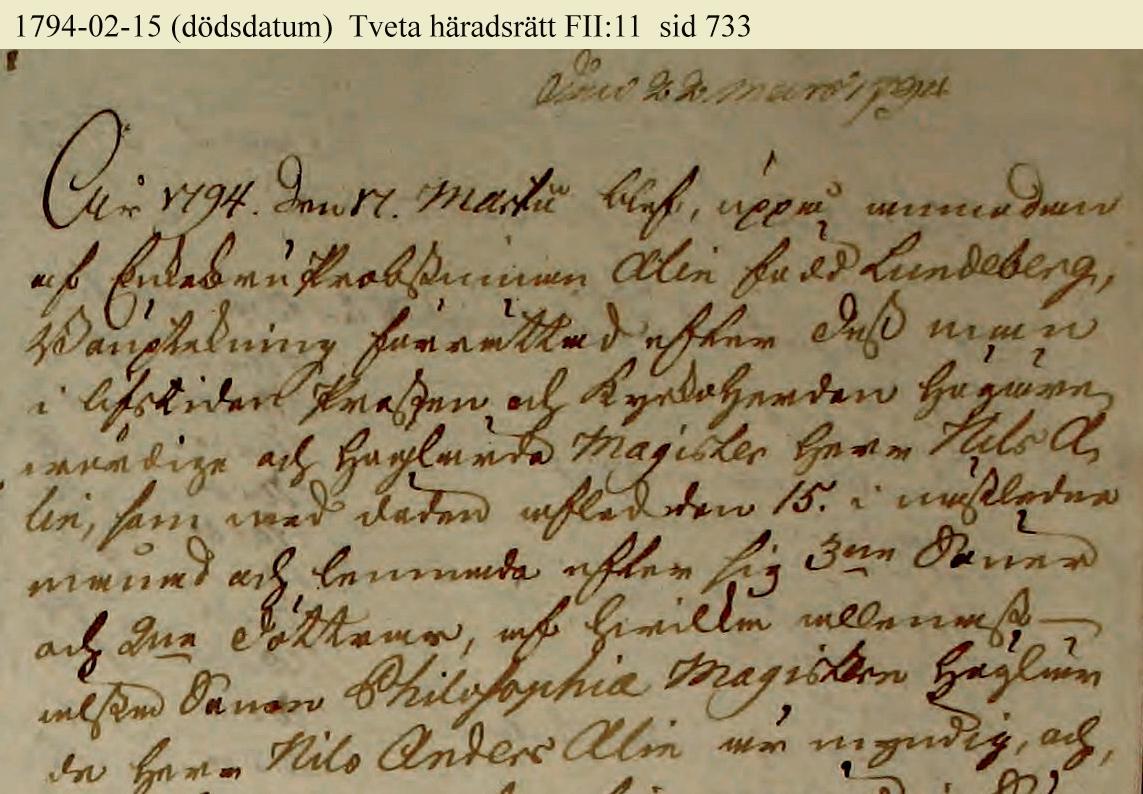 1794-02-15 (dödsdatum) Tveta häradsrätt FII:11 sid 733
den 22 Mars 1794
År 1794. den 17. Martii blef, uppå anmodan
af Enkefru Probstinnan Alin född Lundeberg,
Bouptekning förrättad efter dess man
i lifstiden Prosten och Kyrkoherden Högäre
wördige och Höglärde Magister Herr Nils A,
lin, som med döden afled den 15. i nästledne
månad och lemnade efter sig 3ne Söner
och 2ne Döttrar, af hvilka allenast
älsta Sonen Philosophiæ Magistern Höglär
de Herr Nils Anders Alin är myndig, och,